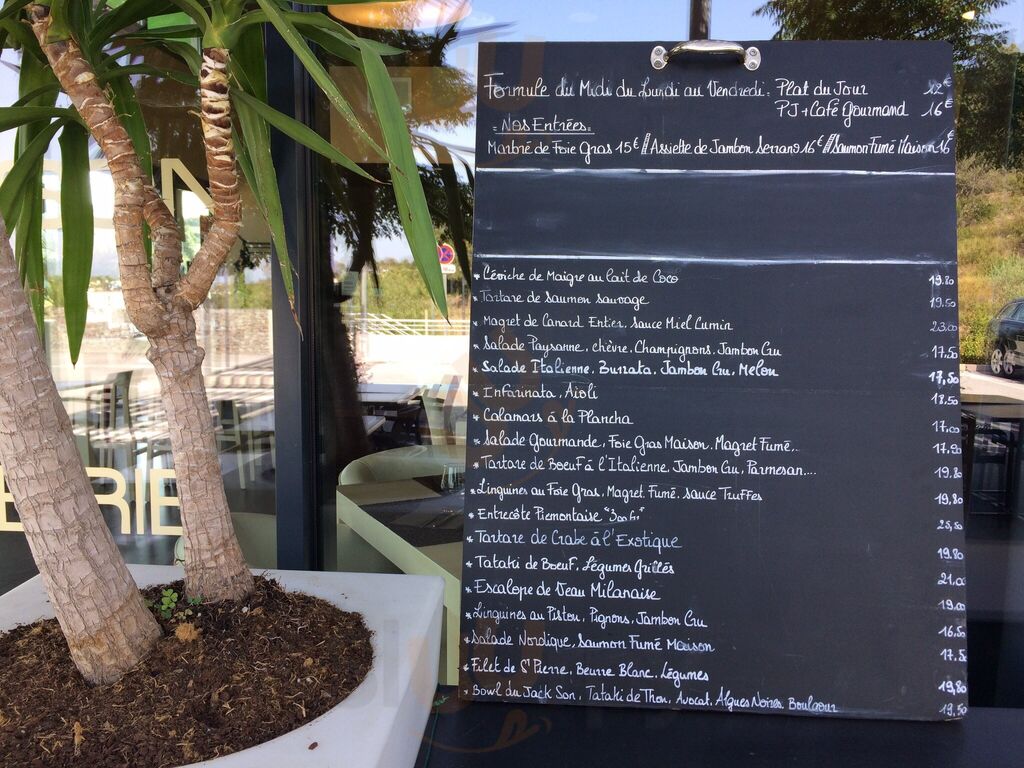 Formule du Midi du Lundi au Vendredi: Plat du Jour 12€
PJ + Café Gourmand 16€
= Nos Entrées =
Marbré de Foie Gras 15€ // Assiette de Jambon Serrano 16€ // Saumon Fumé Maison 16€
* Céviche de Maigre au lait de Coco 19.80
* Tartare de saumon sauvage 19.50
* Magret de Canard Entier, sauce Miel Cumin 23.00
* Salade Paysanne, chèvre, Champignons, Jambon Cru 17.50
* Salade Italienne, Burrata, Jambon Cru, Melon 17,50
* Infarinata, Aïoli 18.50
* Calamars à la Plancha 17.00
* Salade Gourmande, Foie Gras Maison, Magret Fumé... 17.90
* Tartare de Boeuf à l'Italienne, Jambon Cru, Parmesan.... 19.80
* Linguines au Foie Gras, Magret Fumé, sauce Truffes 19.80
* Entrecôte Piemontaise "300 Gr" 25,50
* Tartare de Crabe à l'Exotique 19.80
* Tataki de Boeuf, Légumes Grillés 21.00
* Escalope de Veau Milanaise 19.00
* Linguines au Pistou, Pignons, Jambon Cru 16.50
* Salade Nordique, Saumon Fumé Maison 17.5
* Filet de St Pierre, Beurre Blanc, Légumes 19,80
* Bowl du Jack Son, Tataki de Thon, Avocat, Algues Noires, Boulgour 19,50
ERIE